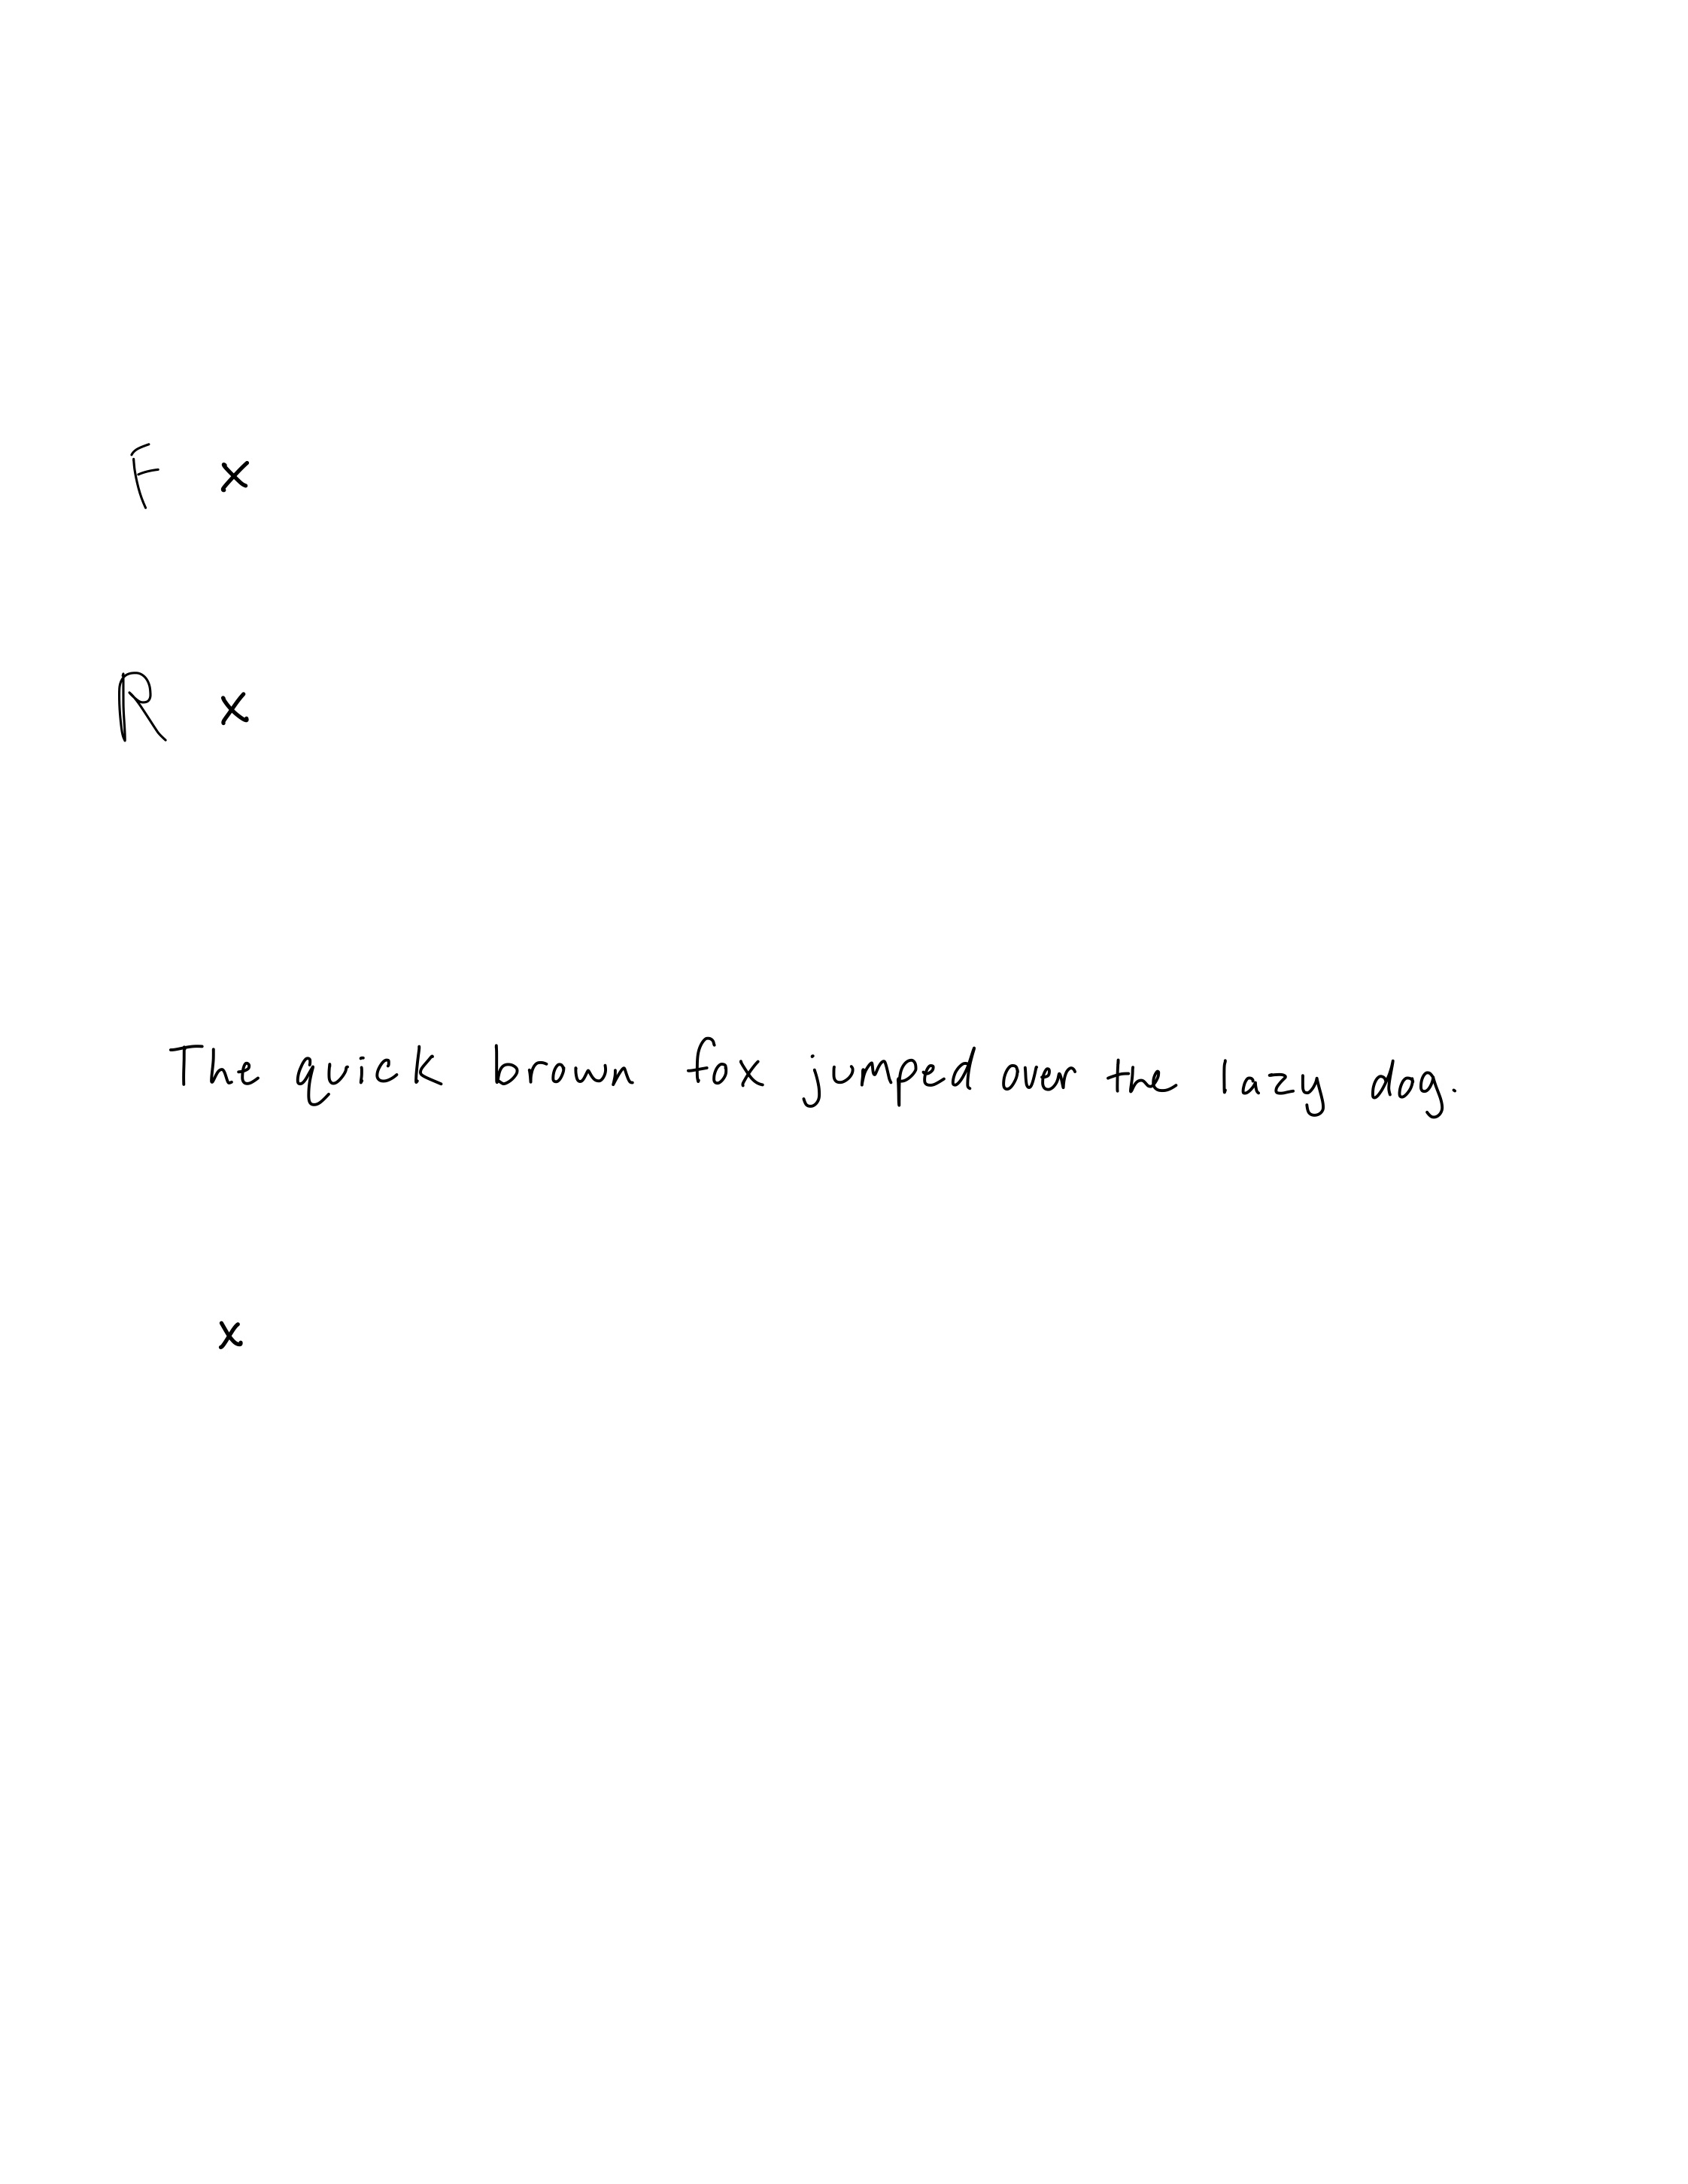 F x
R x
The quick brown fox jumped over the lazy dog.
x